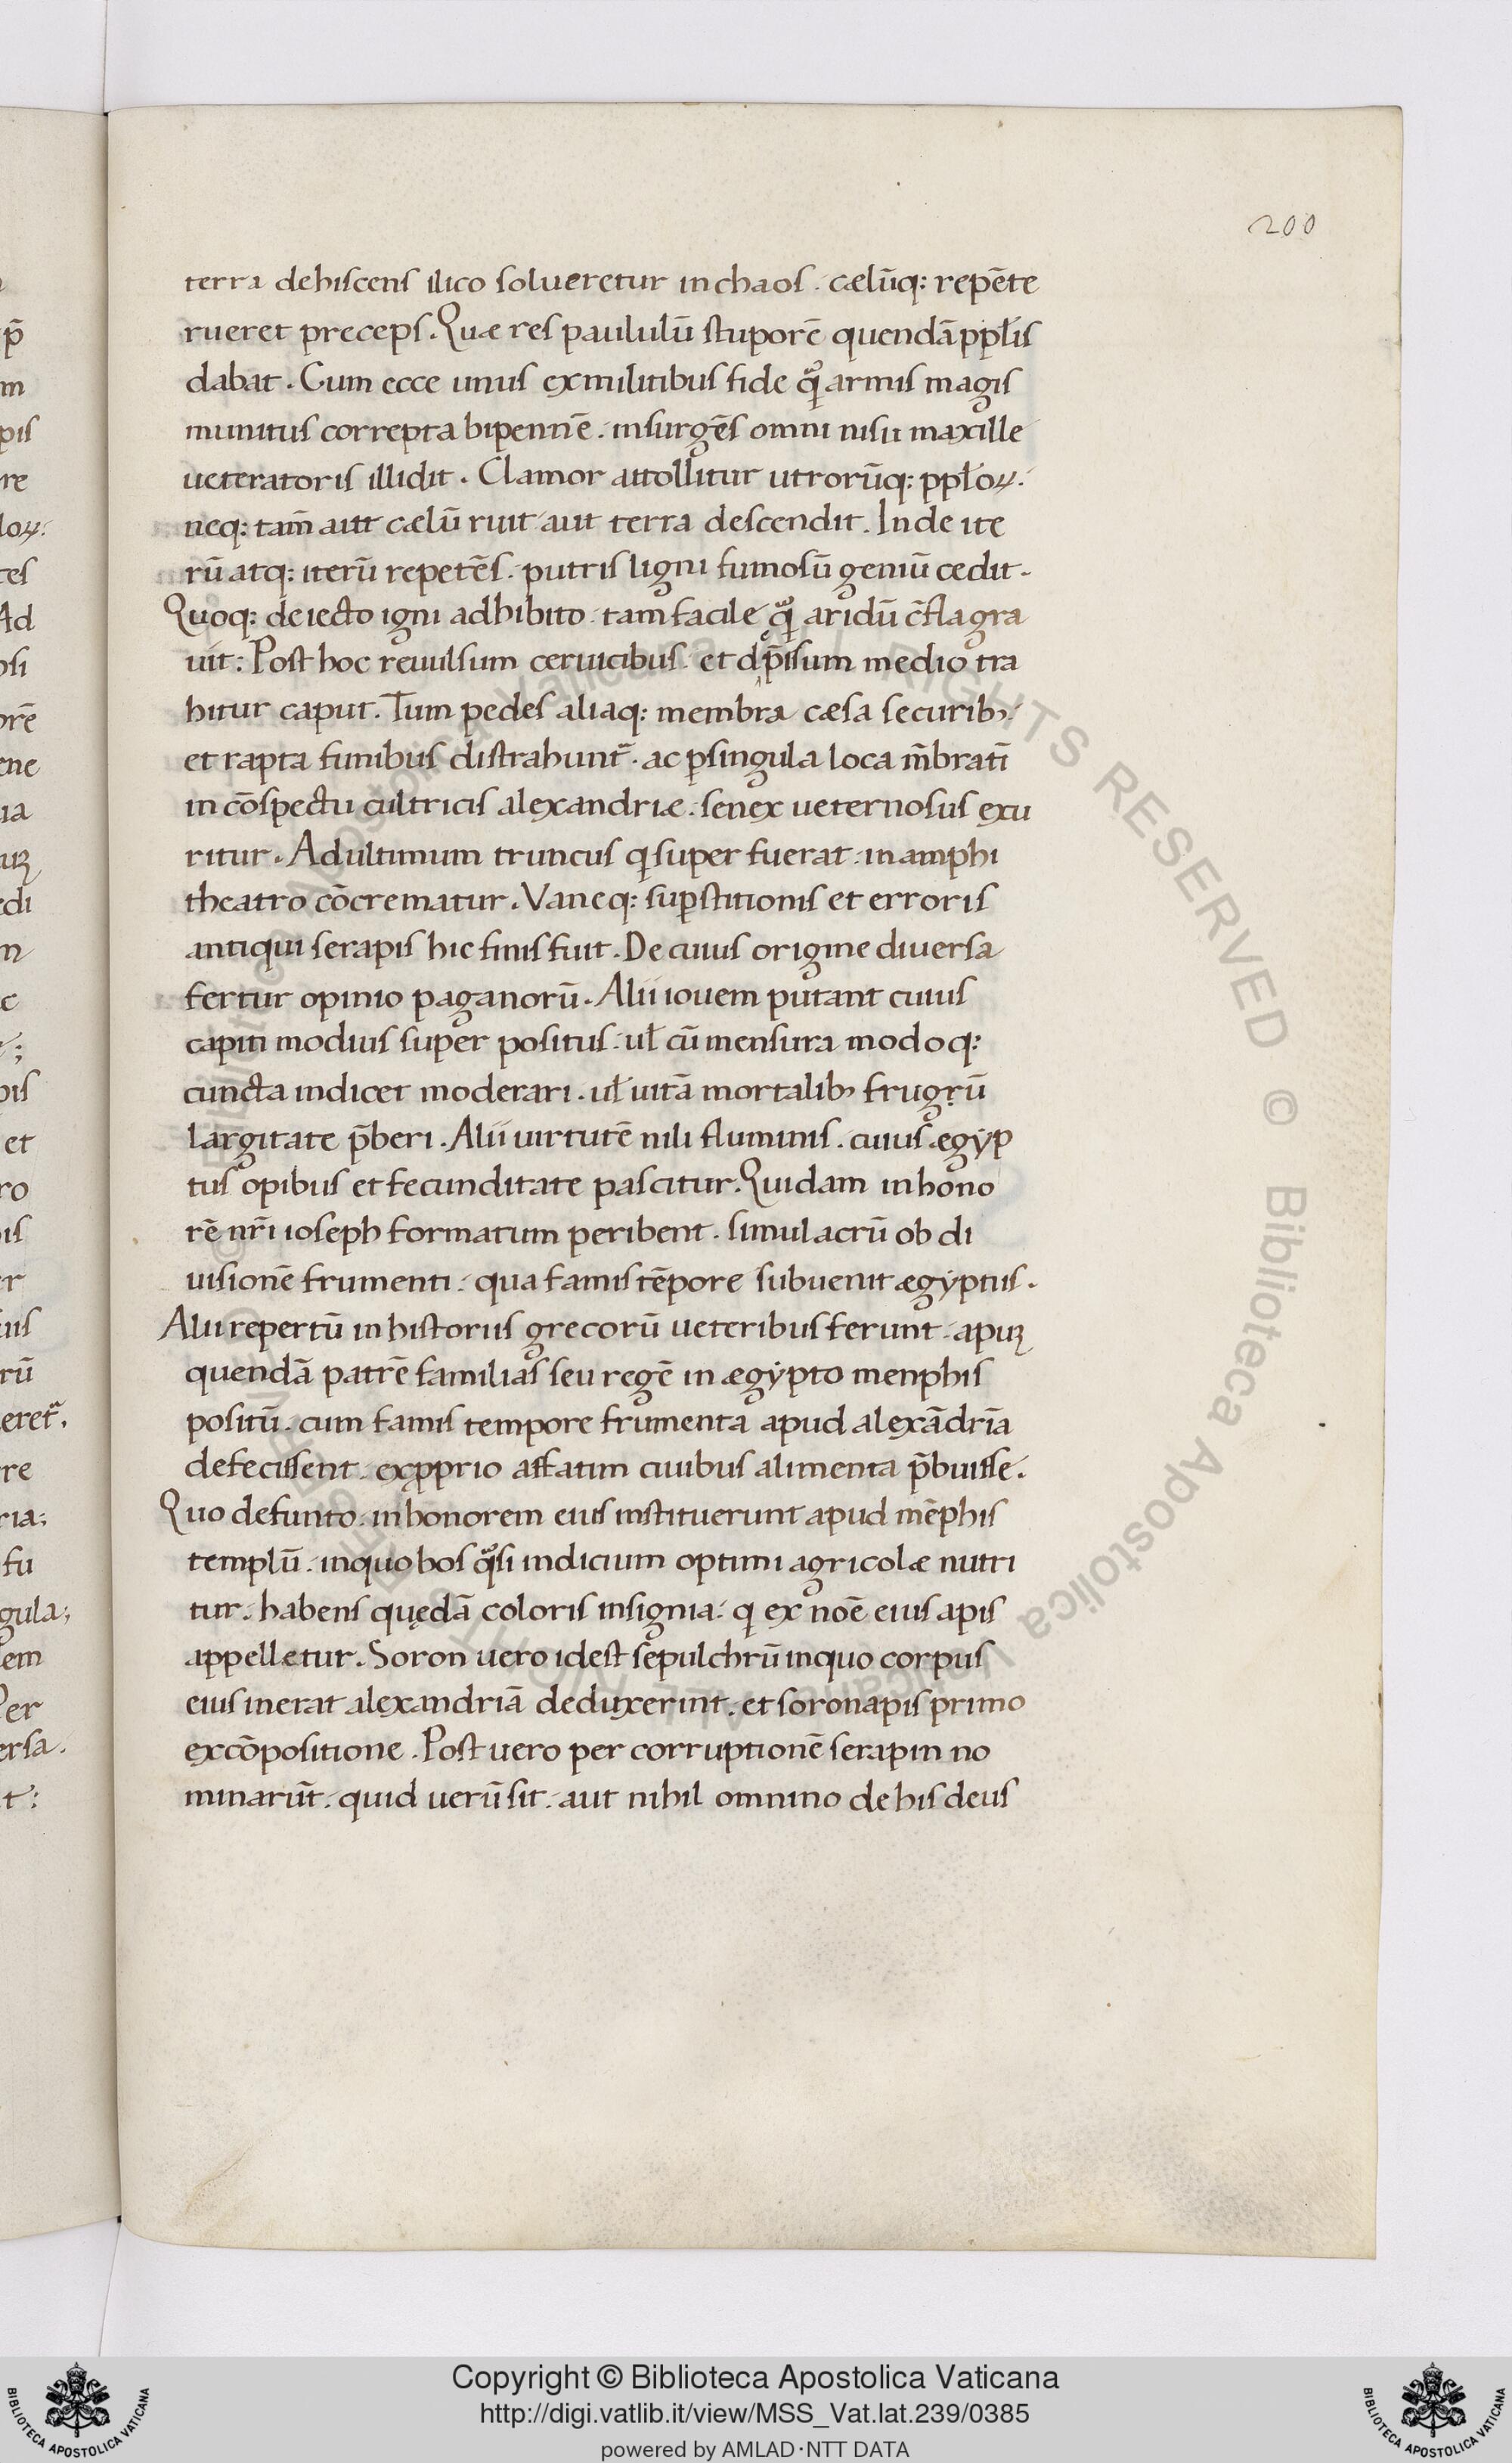 200
terra dehiscens ilico solueretur in chaos . cælūq: repēte
rueret preceps . Quæ res paululū stuporē quendā ppłis
dabat . Cum ecce unus ex militibus fide qͣ armis magis
munitus correpta bipennē . insurgēs omni nisu maxille
ueteratoris illidit . Clamor attollitur utrorūq: ppłoꝝ .
neq: tam̄ aut cælū ruit . aut terra descendit . Inde ite
rū atq: iterū repetēs . putris ligni fumosū geniū cedit .
Quoq: deiecto igni adhibito . tam facile qͣ aridū c̄flagra
uit : Post hoc reuulsum ceruicibus . et dp̄ssum medio tra
hitur caput . Tum pedes aliaq: membra cæsa securib; .
et rapta funibus distrahunt̃ . ac ꝑ singula loca m̄bratī
in cōspectu cultricis alexandriæ . senex ueternosus exu
ritur . Ad ultimum truncus q super fuerat . in amphi
theatro cōcrematur . Vaneq: suꝑstitionis et erroris
antiqui serapis hic finis fuit . De cuius origine diuersa
fertur opinio paganorū . Alii iouem putant cuius
capiti modius super positus . uł cū mensura modoq:
cuncta indicet moderari . uł uitā mortalib; frugrū
largitate p̄beri . Alii uirtutē nili fluminis . cuius ægyp
tus opibus et fecunditate pascitur . Quidam in hono
rē nr̄i ioseph formatum peribent . simulacrū ob di
uisionē frumenti . qua famis tēpore subuenit ægyptiis .
Alii repertū in historiis grecorū ueteribus ferunt . apuꝫ
quendā patrē familias seu regē in ægypto menphis
positū . cum famis tempore frumenta apud alexādrīa
defecissent . ex ꝓprio affatim ciuibus alimenta p̄buisse .
Quo defunto . in honorem eius instituerunt apud mēphis
templū . in quo bos qͣsi indicium optimi agricolæ nutri
tur . habens quędā coloris insignia . q ex noē eius apis
appelletur . Soron uero idest sepulchrū in quo corpus
eius inerat alexandriā deduxerint . et soronapis primo
ex cōpositione . Post uero per corruptionē serapin no
minarūt . quid uerū sit . aut nihil omnino de his deus
Copyright © Biblioteca Apostolica Vaticana
http://digi.vatlib.it/view/MSS_Vat.lat.239/0385
powered by AMLAD·NTT DATA